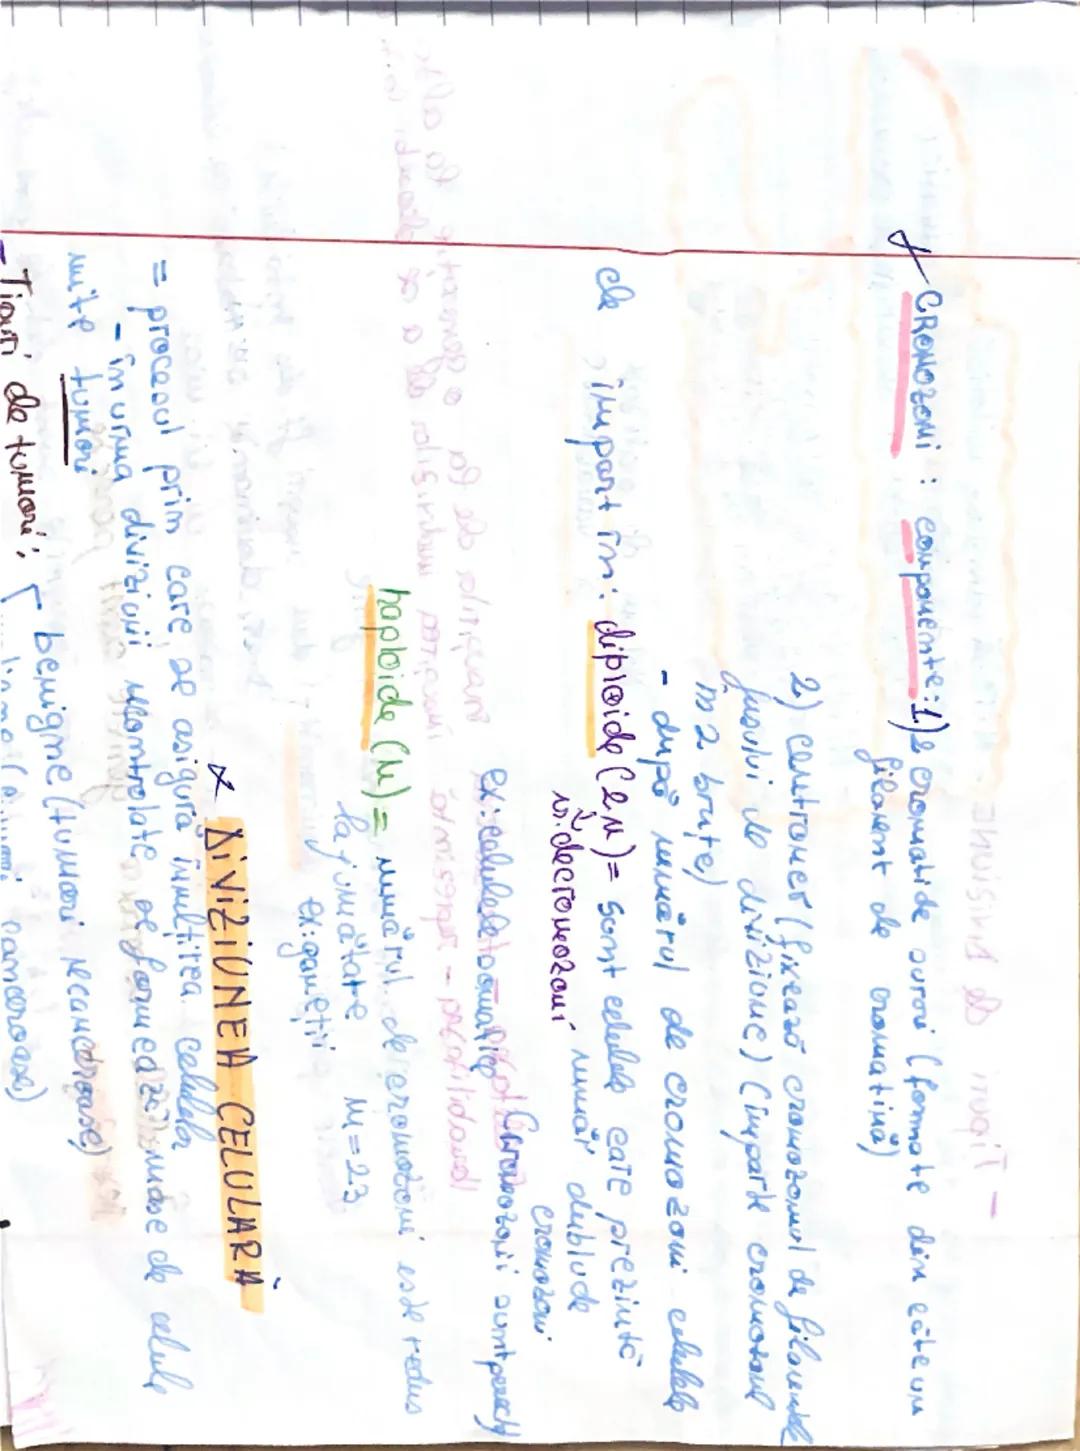 CROMOZOMI : componente: 1) 2 cromatide surori (formate din câte un
filament de cromatină)
2) centromer (fixează cromozomul de filamentele
fusului de diviziune) (împarte cromozomul
în 2 brațe)
- după numărul de cromozomi celulele
se împart în: diploide (2n) = sunt celule care prezintă
nr. de cromozomi număr dublu de
cromozomi
ex: celulele somatice Cromozomii sunt perechi
haploide (n) = numărul de cromozomi este redus
la jumătate n = 23
ex: gameții
x DIVIZIUNEA CELULARĂ
= procesul prin care se asigură înmulțirea celulelor
- în urma diviziunii necontrolate se formează mase de celule
numite tumori
- Tipuri de tumori: benigne (tumori necanceroase)
canceroase)